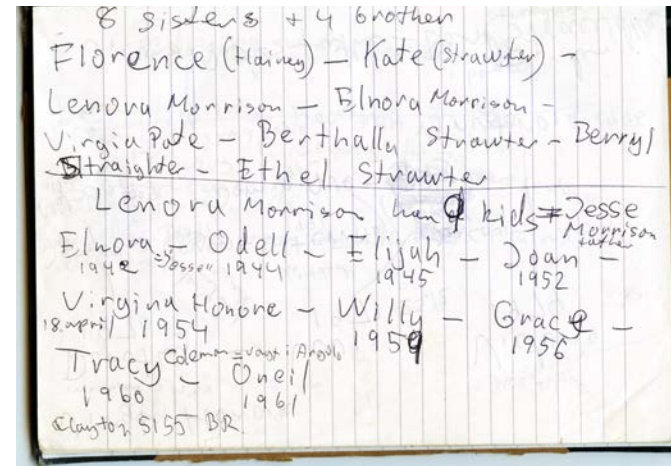 8 sisters + 4 brother
Florence (Hainey) — Kate (Strawter) —
Lenora Morrison — Elnora Morrison —
Virgia Pate — Berthalla Strawter — Berryl
Straighter — Ethel Strawter
Lenora Morrison han 9 kids = Jesse Morrison father
Elnora — Odell — Elijah — Joan —
1942 = Jesse 1944 1945 1952
Virgina Honore — Willy — Grace —
18. april 1954 1959 1956
Tracy Coleman = i — Oneil
1960 1961
Clayton 5155 BR